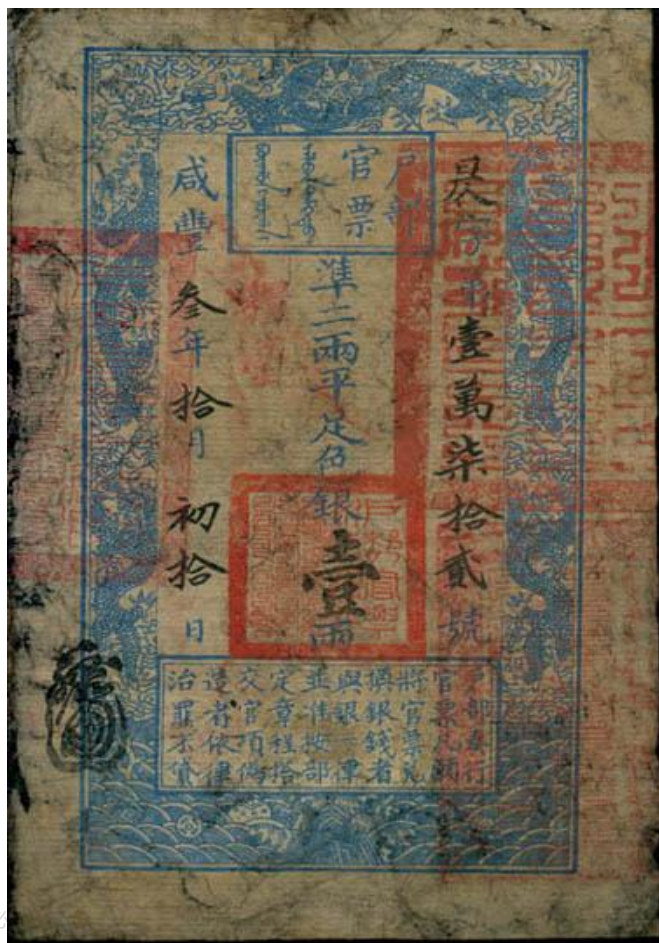 戶部
官票
昃字第壹萬柒拾貳號
準二兩平足色銀壹兩
咸豐叁年拾月初拾日
戶部奏行
官票凡願
將官票兌
換銀錢者
與銀一律
並准按部
定章程搭
交官項偽
造者依律
治罪不貸